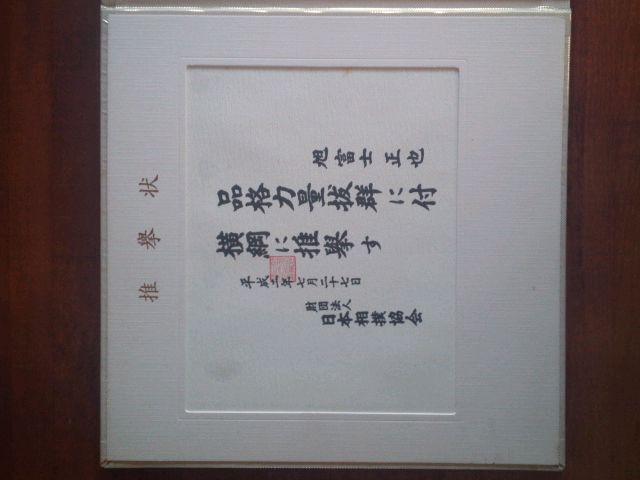 推挙状
旭富士 正也
品格力量抜群に付
横綱に推挙す
平成二年七月二十七日
財団法人
日本相撲協会